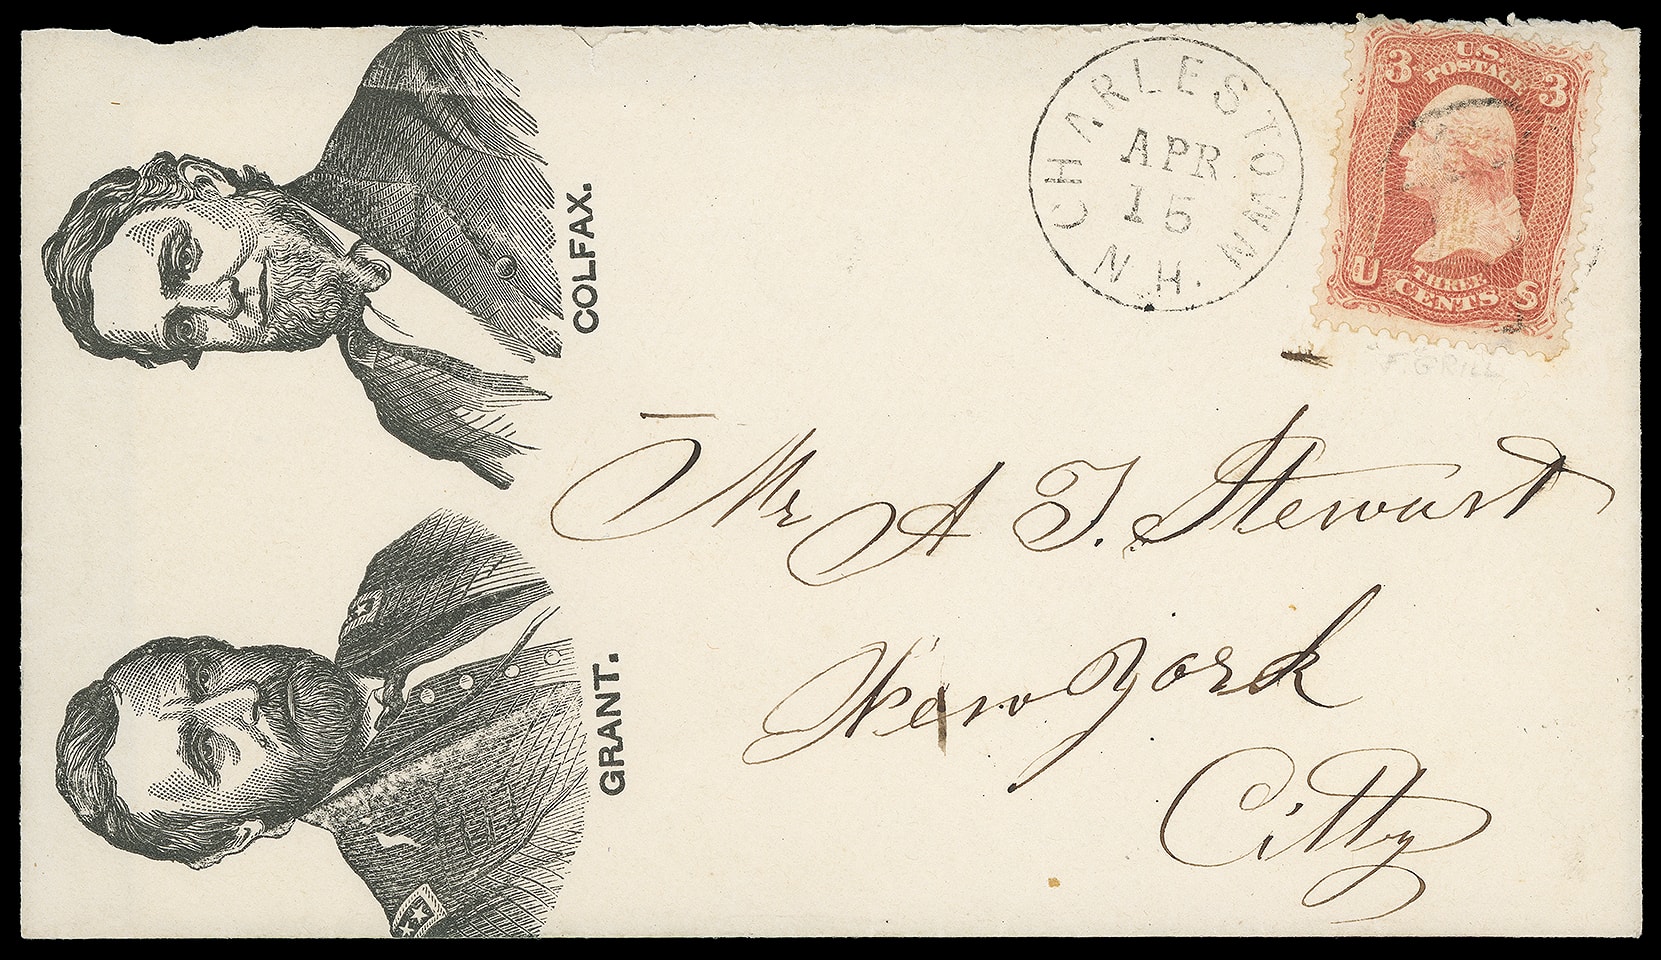 COLFAX.
GRANT.
CHARLESTOWN N.H.
APR
15
3 U.S. POSTAGE 3
U THREE CENTS S
F. GRILL
Mr A T. Stewart
New York
Citty